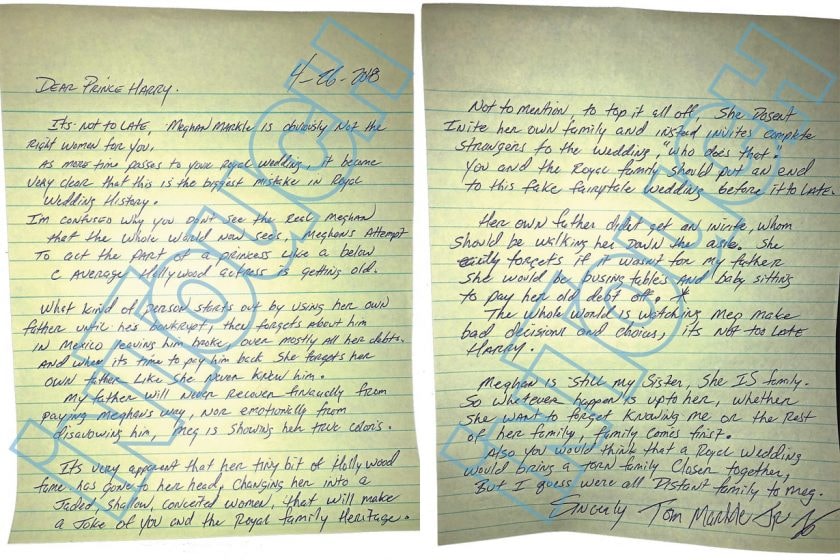 4-26-2018
DEAR PRINCE HARRY.
ITS NOT TO LATE, MEGHAN MARKLE IS OBVIOUSLY NOT THE
RIGHT WOMEN FOR YOU,
AS MORE TIME PASSES TO YOUR ROYAL WEDDING, IT BECAME
VERY CLEAR THAT THIS IS THE BIGGEST MISTAKE IN ROYAL
WEDDING HISTORY.
I'M CONFUSED WHY YOU DON'T SEE THE REAL MEGHAN
THAT THE WHOLE WORLD NOW SEES, MEGHAN'S ATTEMPT
TO ACT THE PART OF A PRINCESS LIKE A BELOW
C AVERAGE HOLLYWOOD ACTRESS IS GETTING OLD.
WHAT KIND OF PERSON STARTS OUT BY USING HER OWN
FATHER UNTIL HES BANKRUPT, THEN FORGETS ABOUT HIM
IN MEXICO LEAVING HIM BROKE, OVER MOSTLY ALL HER DEBTS.
AND WHEN ITS TIME TO PAY HIM BACK SHE FORGETS HER
OWN FATHER LIKE SHE NEVER KNEW HIM.
MY FATHER WILL NEVER RECOVER FINANCIALLY FROM
PAYING MEGHAN'S WAY, NOR EMOTIONALLY FROM
DISAVOWING HIM, MEG IS SHOWING HER TRUE COLORS.
ITS VERY APPARENT THAT HER TINY BIT OF HOLLYWOOD
FAME HAS GONE TO HER HEAD, CHANGING HER INTO A
JADED, SHALLOW, CONCEITED WOMEN, THAT WILL MAKE
A JOKE OF YOU AND THE ROYAL FAMILY HERITAGE.
NOT TO MENTION, TO TOP IT ALL OFF, SHE DOSENT
INITE HER OWN FAMILY AND INSTED INVITES COMPLETE
STRANGERS TO THE WEDDING, "WHO DOES THAT."
YOU AND THE ROYAL FAMILY SHOULD PUT AN END
TO THIS FAKE FAIRYTALE WEDDING BEFORE IT TO LATE.
HER OWN FATHER DIDN'T GET AN INVITE, WHOM
SHOULD BE WALKING HER DOWN THE ASLE. SHE
EASILY FORGETS IF IT WASN'T FOR MY FATHER
SHE WOULD BE BUSING TABLES AND BABY SITTING
TO PAY HER OLD DEBT OFF. *
THE WHOLE WORLD IS WATCHING MEG MAKE
BAD DECISIONS AND CHOICES, ITS NOT TOO LATE
HARRY.
MEGHAN IS STILL MY SISTER, SHE IS FAMILY.
SO WHATEVER HAPPEN IS UPTO HER, WHETHER
SHE WANT TO FORGET KNOWING ME OR THE REST
OF HER FAMILY, FAMILY COMES FIRST.
ALSO YOU WOULD THINK THAT A ROYAL WEDDING
WOULD BRING A TORN FAMILY CLOSER TOGETHER,
BUT I GUESS WERE ALL DISTANT FAMILY TO MEG.
SINCERLY TOM MARKLE JR
inTouch
inTouch